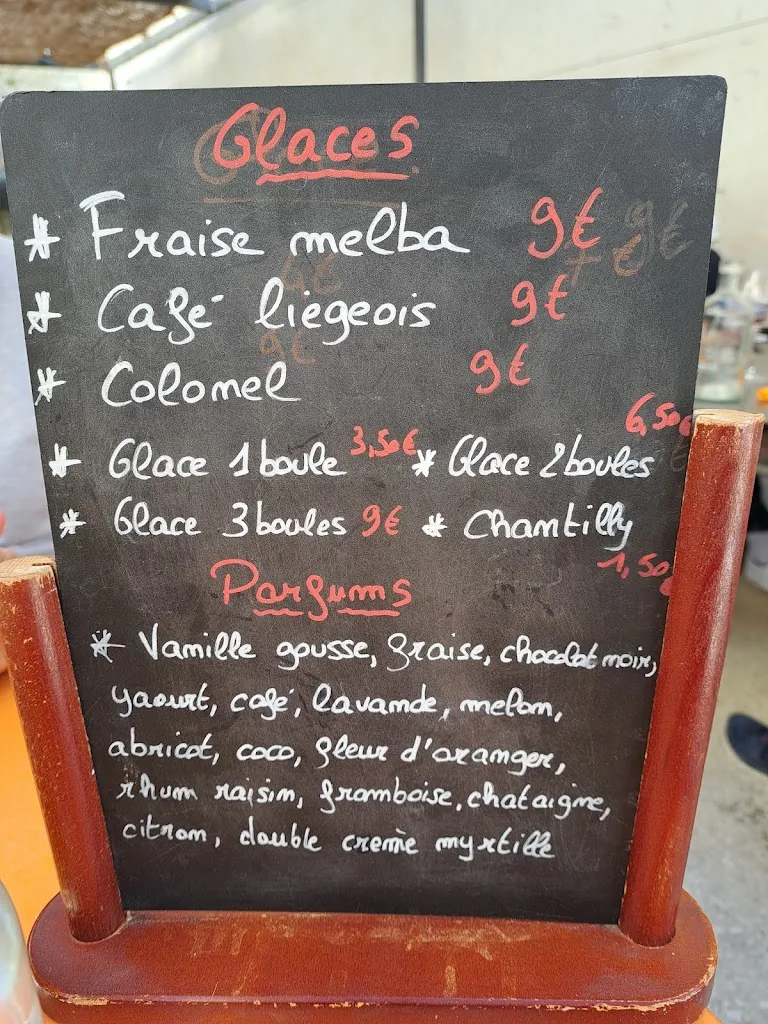 Glaces
* Fraise melba 9€
* Café liégeois 9€
* Colonel 9€
* Glace 1 boule 3,50€ * Glace 2 boules 6,50€
* Glace 3 boules 9€ * Chantilly 1,50€
Parfums
* Vanille gousse, fraise, chocolat noir,
yaourt, café, lavande, melon,
abricot, coco, fleur d'oranger,
rhum raisin, framboise, chataigne,
citron, double creme myrtille